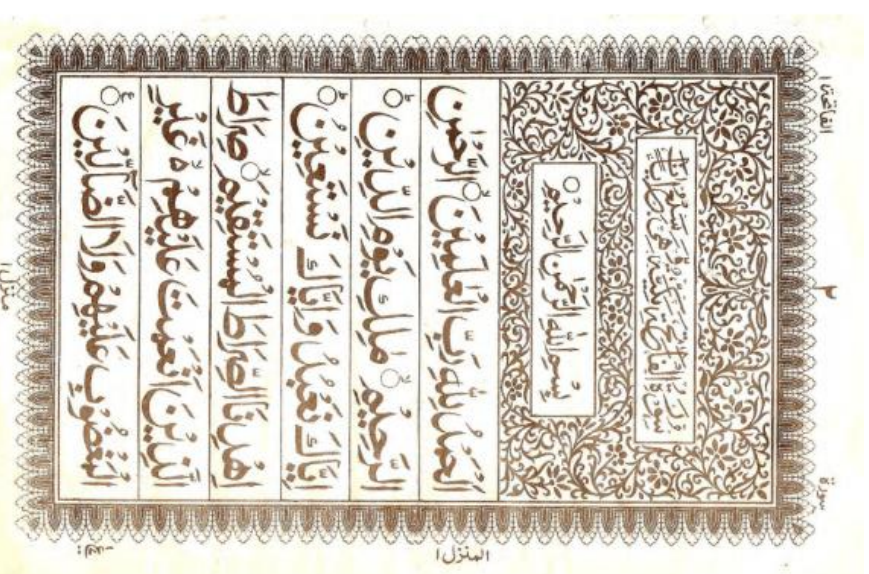 سورة ٢ الفاتحة ١
بِسْمِ اللّٰهِ الرَّحْمٰنِ الرَّحِيْمِ ○
اَلْحَمْدُ لِلّٰهِ رَبِّ الْعٰلَمِيْنَ ○ۙ الرَّحْمٰنِ
الرَّحِيْمِ ○ۙ مٰلِكِ يَوْمِ الدِّيْنِ ○ؕ
اِيَّاكَ نَعْبُدُ وَاِيَّاكَ نَسْتَعِيْنُ ○ؕ
اِهْدِنَا الصِّرَاطَ الْمُسْتَقِيْمَ ○ۙ صِرَاطَ
الَّذِيْنَ اَنْعَمْتَ عَلَيْهِمْ ۙ۬ غَيْرِ
الْمَغْضُوْبِ عَلَيْهِمْ وَلَا الضَّآلِّيْنَ ○
منزل ١
المنزل ١